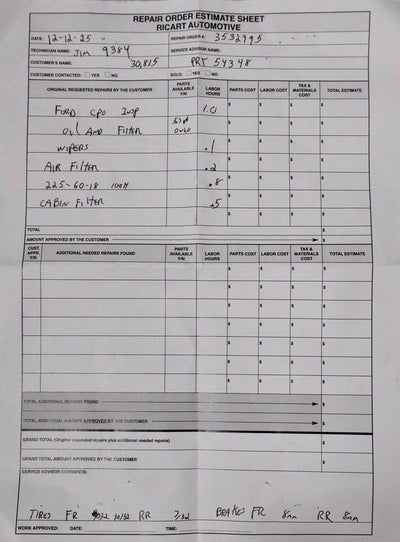 REPAIR ORDER ESTIMATE SHEET
RICART AUTOMOTIVE
DATE: 12-12-25 REPAIR ORDER #: 3532995
TECHNICIAN NAME: Jim 9384 SERVICE ADVISOR NAME:
CUSTOMER'S NAME: 30,815 PRT 54348
CUSTOMER CONTACTED: YES NO SOLD: YES NO
ORIGINAL REQUESTED REPAIRS BY THE CUSTOMER PARTS AVAILABLE Y/N LABOR HOURS PARTS COST LABOR COST TAX & MATERIALS COST TOTAL ESTIMATE
FORD CPO INSP 1.0 $ $ $ $
OIL AND FILTER 0W20 $ $ $ $
WIPERS .1 $ $ $ $
AIR FILTER .2 $ $ $ $
225-60-18 100H .8 $ $ $ $
CABIN FILTER .5 $ $ $ $
TOTAL $
AMOUNT APPROVED BY THE CUSTOMER $
CUST. APPR. Y/N ADDITIONAL NEEDED REPAIRS FOUND PARTS AVAILABLE Y/N LABOR HOURS PARTS COST LABOR COST TAX & MATERIALS COST TOTAL ESTIMATE
$ $ $ $
$ $ $ $
$ $ $ $
$ $ $ $
$ $ $ $
$ $ $ $
$ $ $ $
TOTAL ADDITIONAL REPAIRS FOUND $
TOTAL ADDITIONAL AMOUNT APPROVED BY THE CUSTOMER $
GRAND TOTAL (Original requested repairs plus additional needed repairs) $
GRAND TOTAL AMOUNT APPROVED BY THE CUSTOMER $
SERVICE ADVISOR COMMENTS:
TIRES FR 10/32 RR 7/32 BRAKES FR 8mm RR 8mm
WORK APPROVED: DATE: TIME: